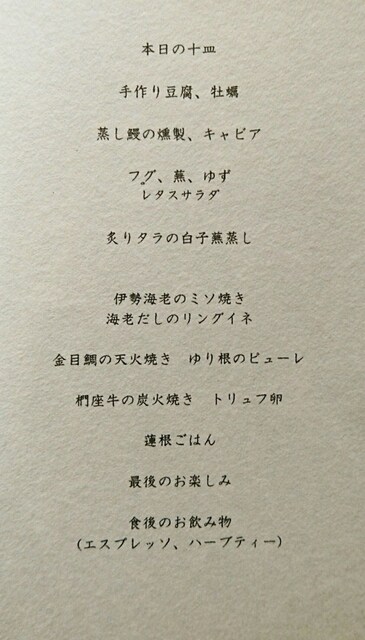 本日の十皿
手作り豆腐、牡蠣
蒸し鰻の燻製、キャビア
フグ、蕪、ゆず
レタスサラダ
炙りタラの白子蕪蒸し
伊勢海老のミソ焼き
海老だしのリングイネ
金目鯛の天火焼き ゆり根のピューレ
椚座牛の炭火焼き トリュフ卵
蓮根ごはん
最後のお楽しみ
食後のお飲み物
(エスプレッソ、ハーブティー)